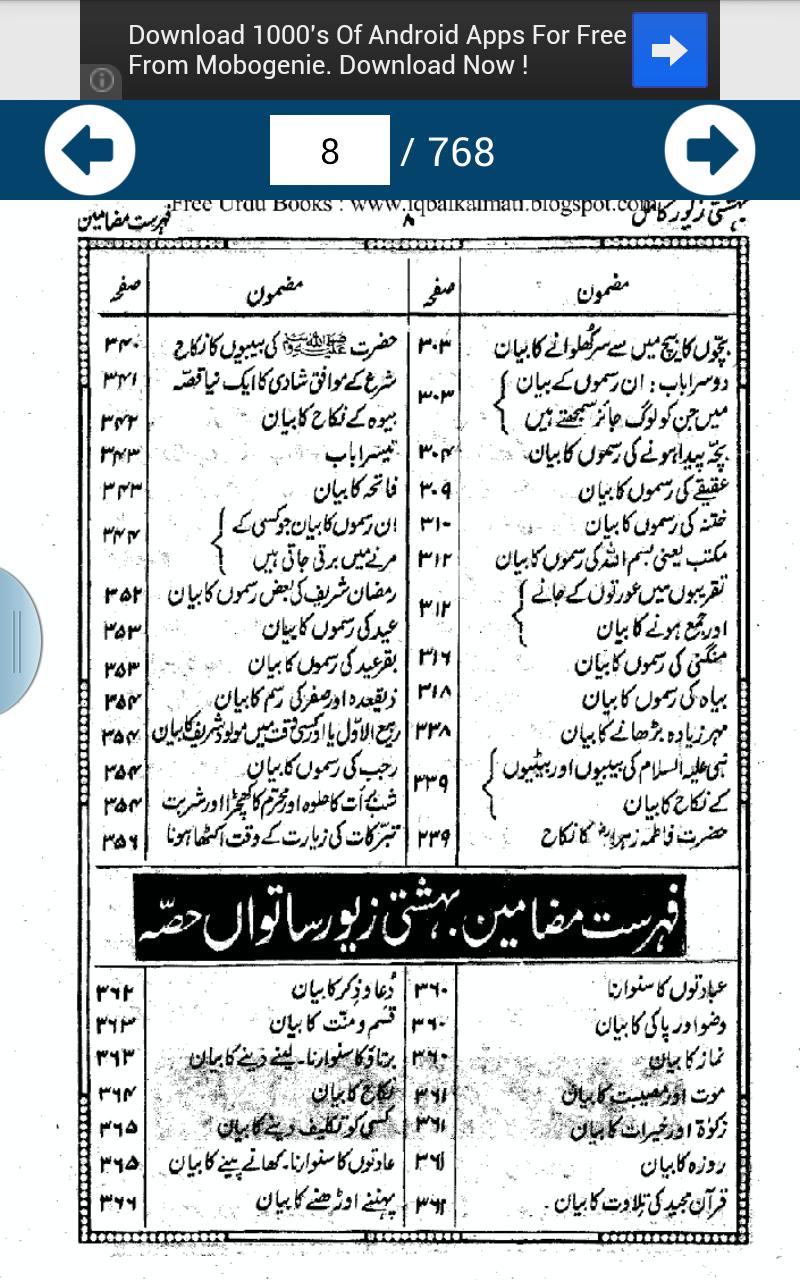 Download 1000's Of Android Apps For Free
From Mobogenie. Download Now !
8 / 768
Free Urdu Books : www.iqbalkalmati.blogspot.com
بہشتی زیور کامل
۸
فہرست مضامین
مضمون صفحہ
بچوں کا بیچ میں سے سر کھلوانے کا بیان ۳۰۳
دوسرا باب : ان رسموں کے بیان
میں جن کو لوگ جائز سمجھتے ہیں ۳۰۳
بچہ پیدا ہونے کی رسموں کا بیان ۳۰۴
عقیقے کی رسموں کا بیان ۳۰۹
ختنہ کی رسموں کا بیان ۳۱۰
مکتب یعنی بسم اللہ کی رسموں کا بیان ۳۱۲
تقریبوں میں عورتوں کے جانے
اور جمع ہونے کا بیان ۳۱۲
منگنی کی رسموں کا بیان ۳۱۶
بیاہ کی رسموں کا بیان ۳۱۸
مہر زیادہ بڑھانے کا بیان ۳۳۸
نبی علیہ السلام کی بیبیوں اور بیٹیوں
کے نکاح کا بیان ۳۳۹
حضرت فاطمہ زہرا کا نکاح ۲۳۹
مضمون صفحہ
حضرت ﷺ کی بیبیوں کا نکاح ۳۴۰
شرع کے موافق شادی کا ایک نیا قصہ ۳۴۱
بیوہ کے نکاح کا بیان ۳۴۲
تیسرا باب ۳۴۳
فاتحہ کا بیان ۳۴۳
ان رسموں کا بیان جو کسی کے
مرنے میں برتی جاتی ہیں ۳۴۴
رمضان شریف کی بعض رسموں کا بیان ۳۵۲
عید کی رسموں کا بیان ۳۵۳
بقر عید کی رسموں کا بیان ۳۵۳
ذیقعدہ اور صفر کی رسم کا بیان ۳۵۴
ربیع الاوّل یا اور کسی وقت میں مولود شریف کا بیان ۳۵۴
رجب کی رسموں کا بیان ۳۵۴
شب برأت کا حلوہ اور محرم کا کھچڑا اور شربت ۳۵۴
تبرکات کی زیارت کے وقت اکٹھا ہونا ۳۵۶
فہرست مضامین بہشتی زیور ساتواں حصہ
عبادتوں کا سنوارنا ۳۶۰
وضو اور پاکی کا بیان ۳۶۰
نماز کا بیان ۳۶۰
موت اور مصیبت کا بیان ۳۶۱
زکوٰۃ اور خیرات کا بیان ۳۶۱
روزہ کا بیان ۳۶۱
قرآن مجید کی تلاوت کا بیان ۳۶۲
دعا و ذکر کا بیان ۳۶۲
قسم و منت کا بیان ۳۶۳
برتاؤ کا سنوارنا۔ لینے دینے کا بیان ۳۶۳
نکاح کا بیان ۳۶۴
کسی کو تکلیف دینے کا بیان ۳۶۵
عادتوں کا سنوارنا۔ کھانے پینے کا بیان ۳۶۵
پہننے اوڑھنے کا بیان ۳۶۶